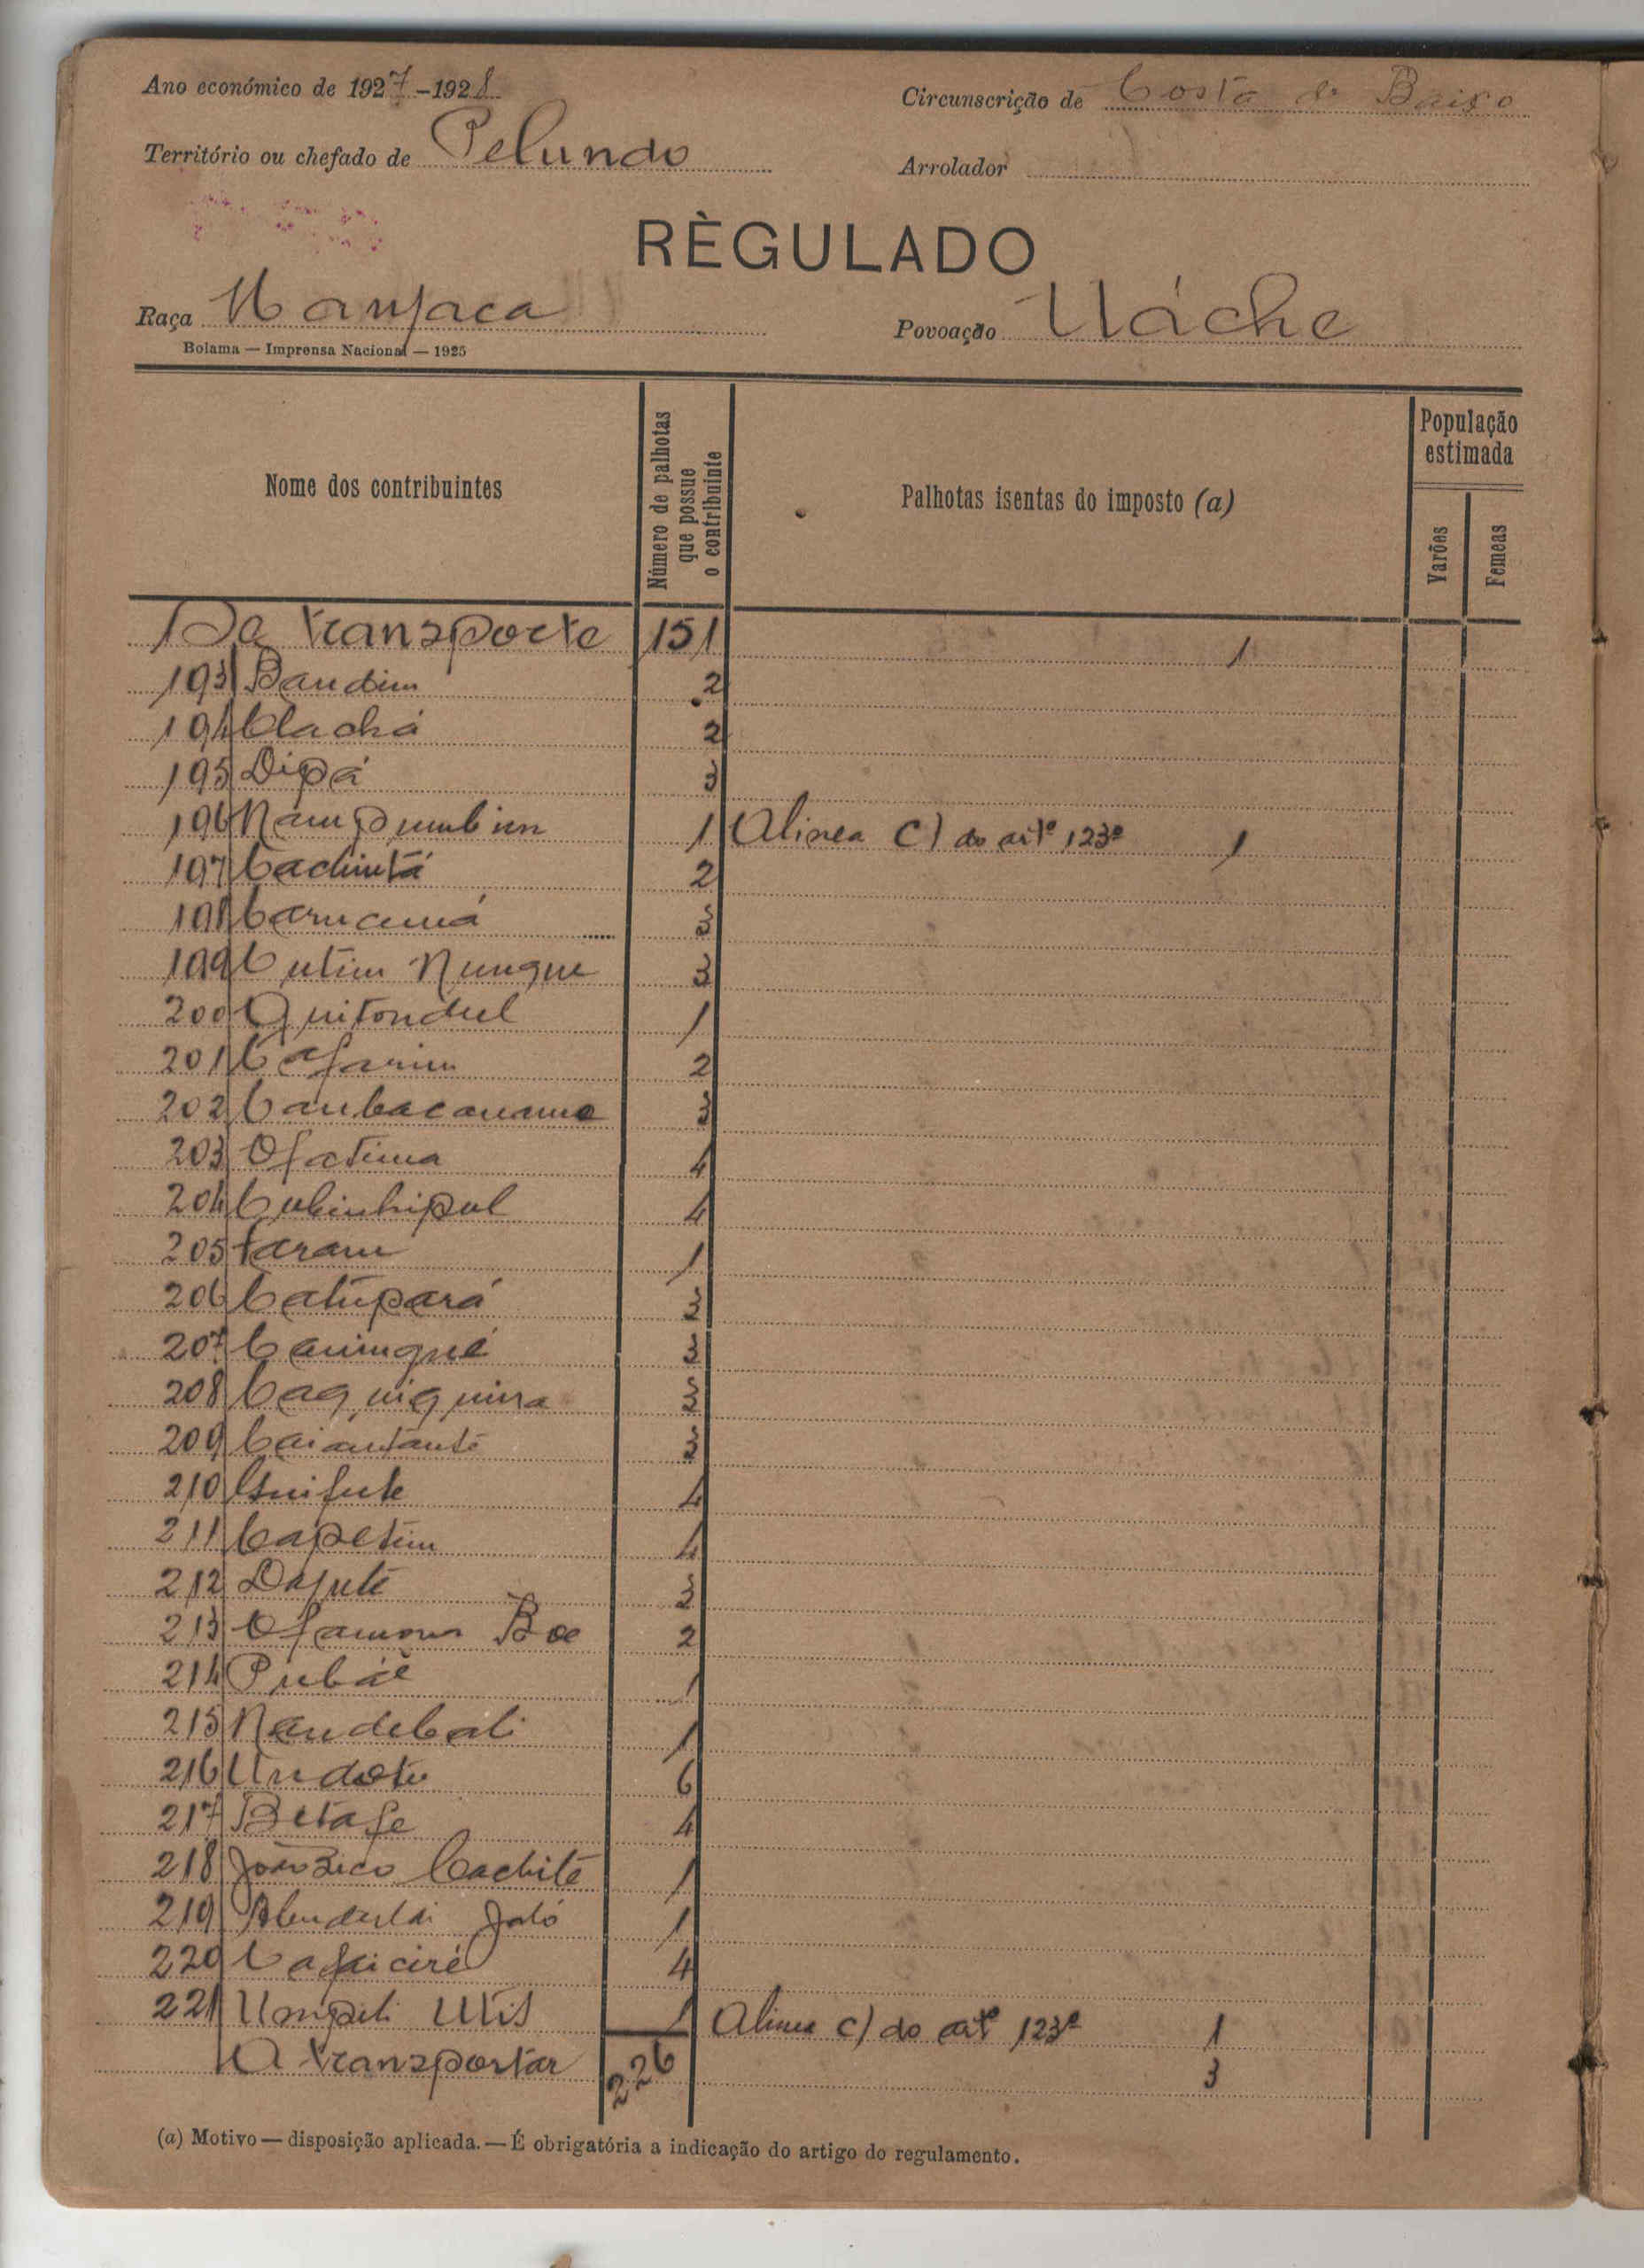 Ano económico de 1927-1928
Circunscrição de Costa de Baixo
Território ou chefado de Pelundo
Arrolador
RÈGULADO
Raça Manjaca
Povoação Uáche
Bolama — Imprensa Nacional — 1925
Nome dos contribuintes
Número de palhotas que possue o contribuinte
Palhotas isentas do imposto (a)
População estimada
Varões
Femeas
De transporte 151 1
193 Bandim 2
194 Clachá 2
195 Dipá 3
196 Nampumbim 1 Alinea C) do artº 123º 1
197 Cachintá 2
198 3
199 Cutim Nungue 3
200 Quitondul 1
201 Cafarim 2
202 3
203 Ofatima 4
204 4
205 Faram 1
206 Catupará 3
207 Caningué 3
208 Caquiquina 3
209 Caiantanté 3
210 4
211 Capetim 4
212 Dajuté 3
213 Boe 2
214 Pubáe 1
215 Nandebali 1
216 6
217 Betafe 4
218 Cachité 1
219 1
220 Cafaiciré 4
221 1 Alinea C) do artº 123º 1
A transportar 226 3
(a) Motivo — disposição aplicada. — É obrigatória a indicação do artigo do regulamento.